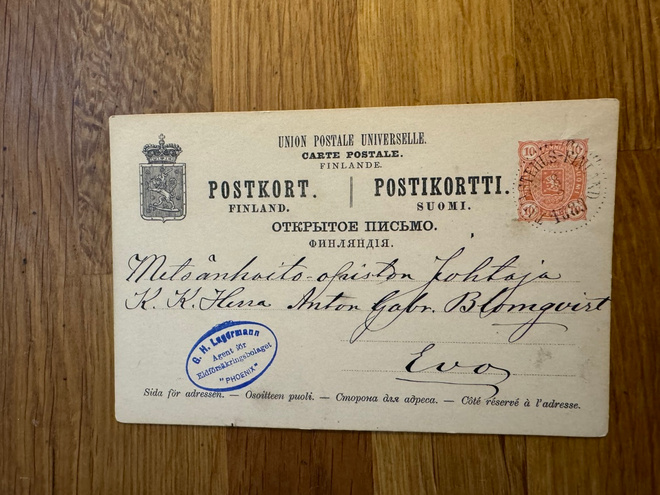 UNION POSTALE UNIVERSELLE.
CARTE POSTALE.
FINLANDE.
POSTKORT. | POSTIKORTTI.
FINLAND. SUOMI.
ОТКРЫТОЕ ПИСЬМО.
ФИНЛЯНДІЯ.
10 10
Metsänhoito-opiston Johtaja
K. K. Herra Anton Gabr. Blomqvist
Evo
G. H. Lagermann
Agent för
Eldförsäkringsbolaget
"PHOENIX"
Sida för adressen. — Osoitteen puoli. — Сторона для адреса. — Côté réservé à l'adresse.